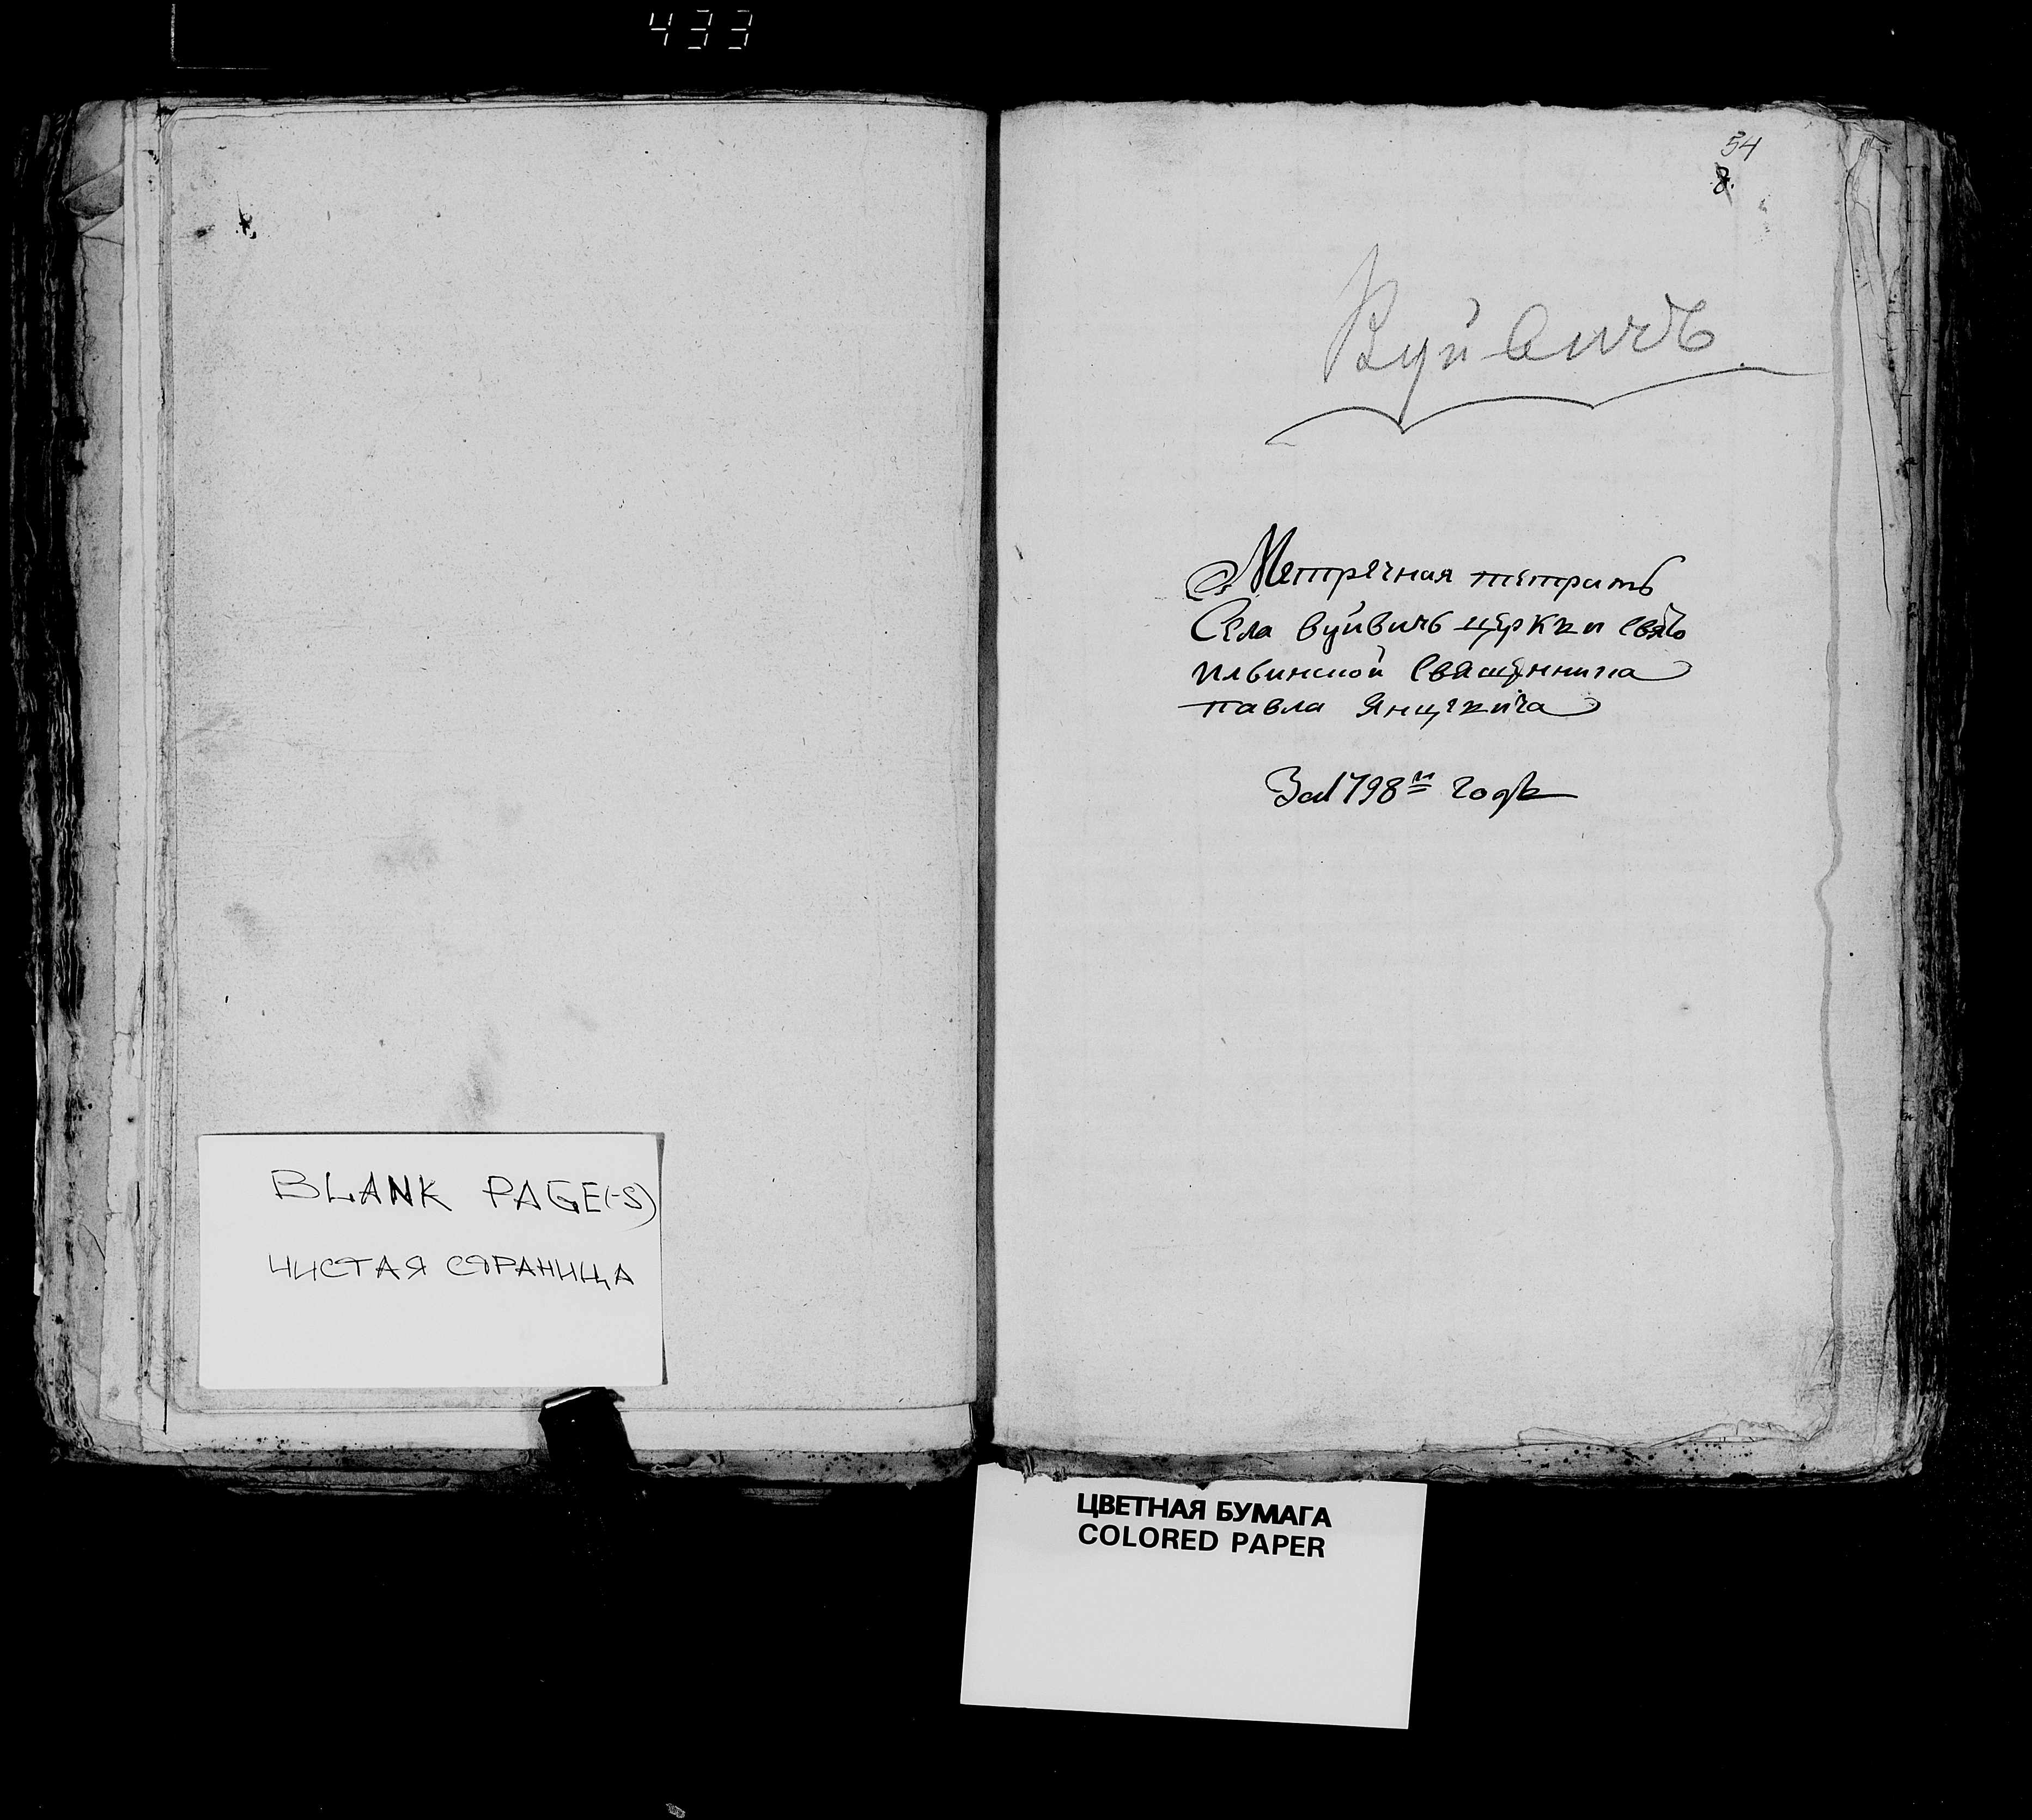 433
BLANK PAGE(-S)
ЧИСТАЯ СТРАНИЦА
54
8.
Вуйвичъ
Метречная тетрать
Села вуйвичь церкви свято
ильинской священника
павла Янцевича
За 1798 м годъ
ЦВЕТНАЯ БУМАГА
COLORED PAPER